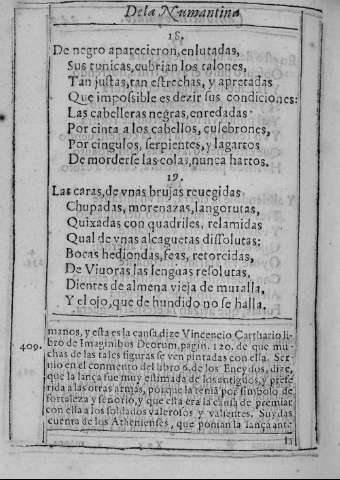 De la Numantina
18.
De negro aparecieron, enlutadas,
Sus tunicas, cubrian los talones,
Tan justas, tan estrechas, y apretadas
Que impossible es dezir sus condiciones:
Las cabelleras negras, enredadas
Por cinta a los cabellos, culebrones,
Por cingulos, serpientes, y lagartos
De morderse las colas, nunca hartos.
19.
Las caras, de vnas brujas reuegidas
Chupadas, morenazas, langorutas,
Quixadas con quadriles, relamidas
Qual de vnas alcaguetas dissolutas;
Bocas hediondas, feas, retorcidas,
De Viuoras las lenguas resolutas,
Dientes de almena vieja de muralla,
Y el ojo, que de hundido no se halla.
manos, y esta es la causa, dize Vincencio Carthario li
409. bro de Imaginibus Deorum. pagin. 120. de que mu
chas de las tales figuras se ven pintadas con ella. Ser
uio en el conmento del libro 6. de los Eneydos, dize,
que la lança fue muy estimada de los antiguos, y prefe
rida a las otras armas, porque la tenia por simbolo de
fortaleza y señorio, y que esta era la causa de premiar
con ella a los soldados valerosos y valientes. Suydas
cuenta de los Athenienses, que ponian la lança ante